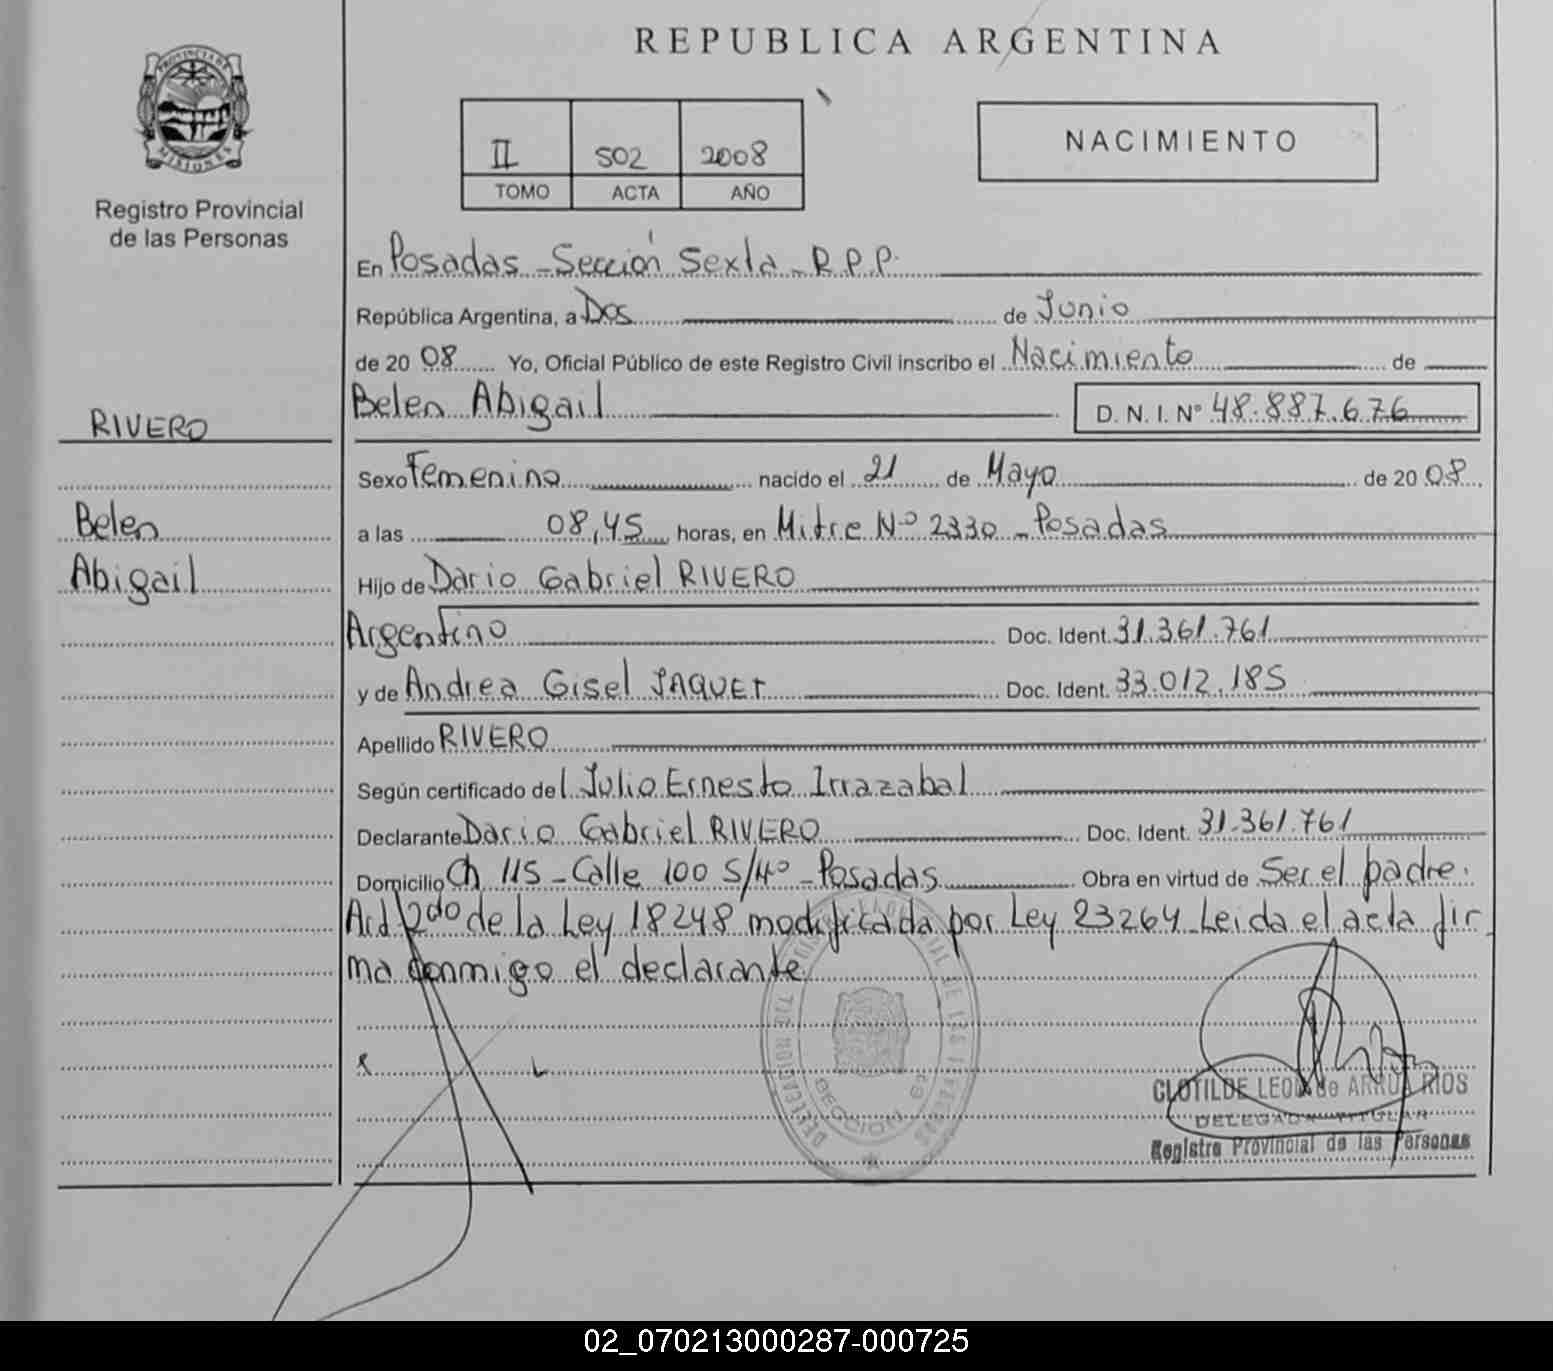 REPUBLICA ARGENTINA
PROVINCIA DE
MISIONES
Registro Provincial
de las Personas
II 502 2008
TOMO ACTA AÑO
NACIMIENTO
En Posadas - Sección Sexta - R.P.P.
República Argentina, a Dos de Junio
de 20 08 Yo, Oficial Público de este Registro Civil inscribo el Nacimiento de
Belen Abigail D. N. I. Nº 48.887.676
RIVERO
Sexo Femenino nacido el 21 de Mayo de 20 08
Belen
a las 08,45 horas, en Mitre Nº 2330 - Posadas
Abigail
Hijo de Dario Gabriel RIVERO
Argentino Doc. Ident. 31.361.761
y de Andrea Gisel JAQUET Doc. Ident. 33.012.185
Apellido RIVERO
Según certificado del Julio Ernesto Irrazabal
Declarante Dario Gabriel RIVERO Doc. Ident. 31.361.761
Domicilio Ch 115 - Calle 100 S/Nº - Posadas Obra en virtud de Ser el padre.
Art 2do de la Ley 18248 modificada por Ley 23264 - Leida el acta fir
ma conmigo el declarante
SECCION 6ª
CLOTILDE LEON de ARRUA RIOS
DELEGADA TITULAR
Registro Provincial de las Personas
02_070213000287-000725